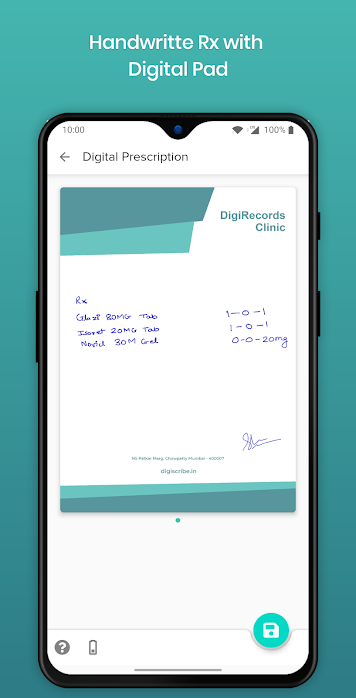 Handwritte Rx with
Digital Pad
10:00
100%
Digital Prescription
DigiRecords
Clinic
Rx
80MG Tab 1-0-1
Isoret 20MG Tab 1-0-1
30M Gel 0-0-20mg
Marg, Chowpatty Mumbai - 400007
digiscribe.in
?